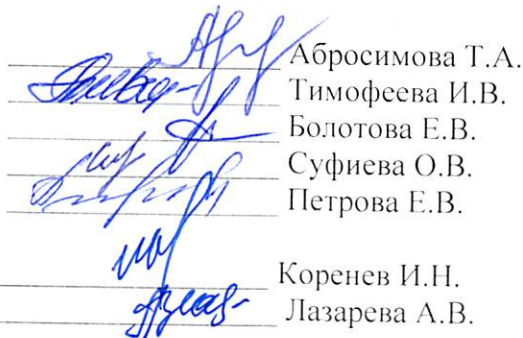 Абросимова Т.А.
Тимофеева И.В.
Болотова Е.В.
Суфиева О.В.
Петрова Е.В.
Коренев И.Н.
Лазарева А.В.